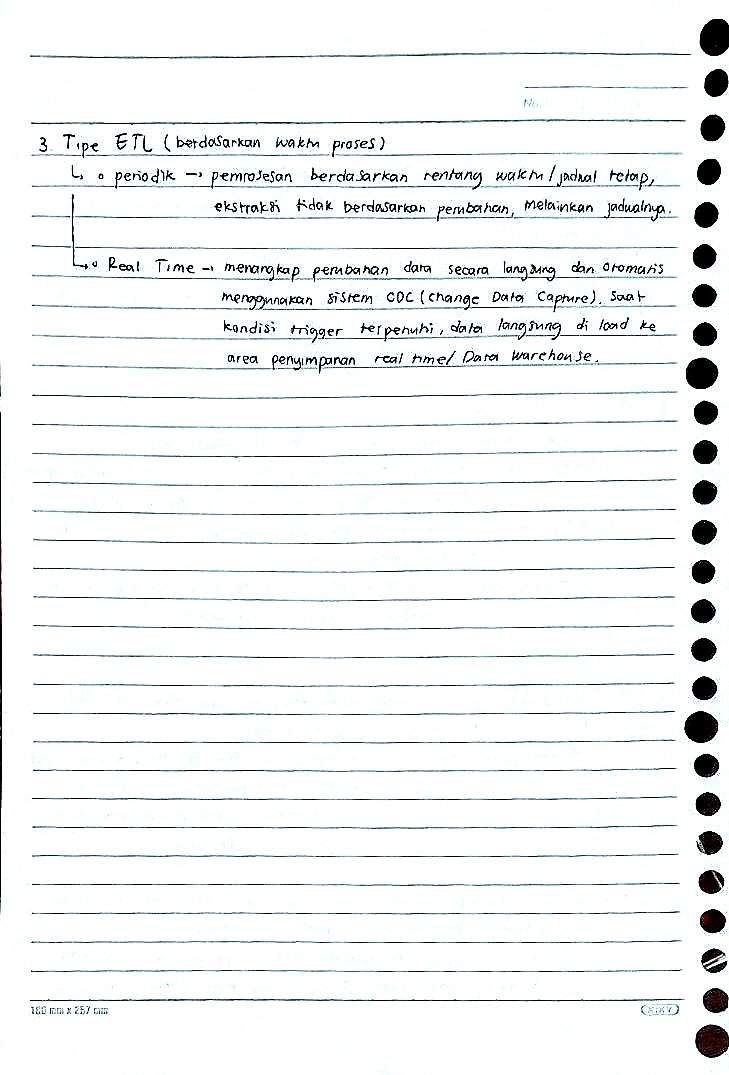 No.
3. Tipe ETL (berdasarkan waktu proses)
↳ o periodik → pemrosesan berdasarkan rentang waktu/jadwal tetap,
ekstraksi tidak berdasarkan perubahan, melainkan jadwalnya.
↳ o Real Time → menangkap perubahan data secara langsung dan otomatis
menggunakan sistem CDC (Change Data Capture). Saat
kondisi trigger terpenuhi, data langsung di load ke
area penyimpanan real time/ Data Warehouse.
180 mm x 257 mm
KIKY